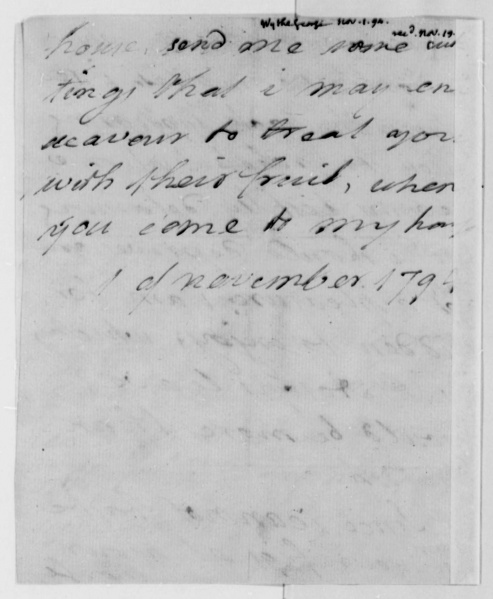 Wythe George Nov. 1. 94.
recd. Nov. 19.
house, send me some cut
tings that i may en
deavour to treat you
with their fruit, when
you come to my hous
1 of november. 1794